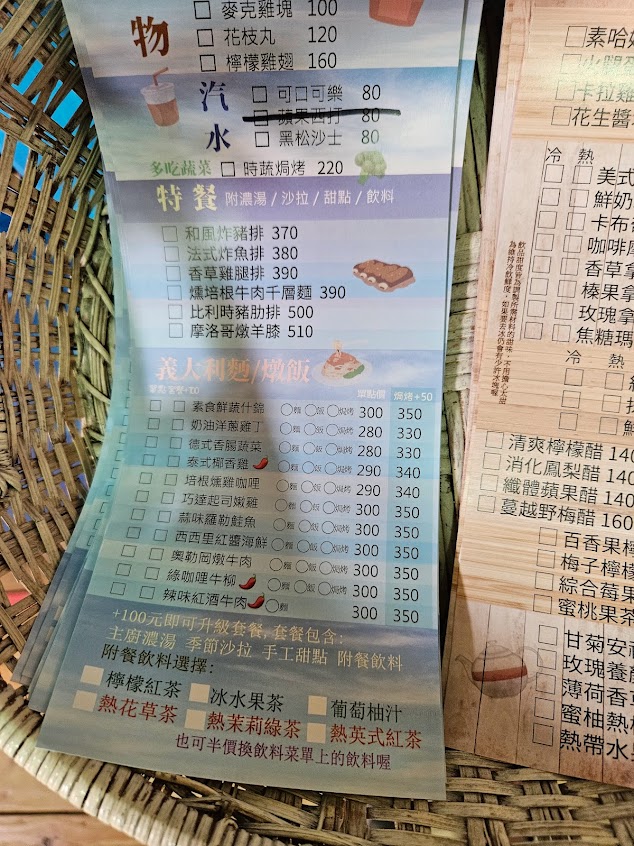 物
麥克雞塊 100
花枝丸 120
檸檬雞翅 160
汽水
可口可樂 80
蘋果西打 80
黑松沙士 80
多吃蔬菜 時蔬焗烤 220
特餐 附濃湯/沙拉/甜點/飲料
和風炸豬排 370
法式炸魚排 380
香草雞腿排 390
燻培根牛肉千層麵 390
比利時豬肋排 500
摩洛哥燉羊膝 510
義大利麵/燉飯
單點 套餐+100 單點價 焗烤+50
素食鮮蔬什錦 麵 飯 焗烤 300 350
奶油洋蔥雞丁 麵 飯 焗烤 280 330
德式香腸蔬菜 麵 飯 焗烤 280 330
泰式椰香雞 麵 飯 焗烤 290 340
培根燻雞咖哩 麵 飯 焗烤 290 340
巧達起司嫩雞 麵 飯 焗烤 300 350
蒜味羅勒鮭魚 麵 飯 焗烤 300 350
西西里紅醬海鮮 麵 飯 焗烤 300 350
奧勒岡燉牛肉 麵 飯 焗烤 300 350
綠咖哩牛柳 麵 飯 焗烤 300 350
辣味紅酒牛肉 麵 300 350
+100元即可升級套餐,套餐包含:
主廚濃湯 季節沙拉 手工甜點 附餐飲料
附餐飲料選擇:
檸檬紅茶 冰水果茶 葡萄柚汁
熱花草茶 熱茉莉綠茶 熱英式紅茶
也可半價換飲料菜單上的飲料喔
素哈
卡拉雞
花生醬
冷 熱
美式
鮮奶
卡布
咖啡
香草拿
榛果拿
玫瑰拿
焦糖瑪
冷 熱
清爽檸檬醋 140
消化鳳梨醋 140
纖體蘋果醋 140
蔓越野梅醋 160
百香果檸
梅子檸檬
綜合莓果
蜜桃果茶
甘菊安
玫瑰養
薄荷香
蜜柚熱
熱帶水